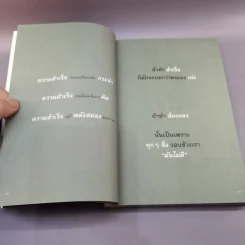 ความสำเร็จ กระทำ
ความสำเร็จ คิด
ความสำเร็จ พลังสมอง
ถ้าทำ สำเร็จ
ก็มักจะบอกว่าตนเอง เก่ง
ถ้าทำ ล้มเหลว
นั่นเป็นเพราะ
ทุก ๆ สิ่ง รอบข้างเรา
"มันไม่ดี"